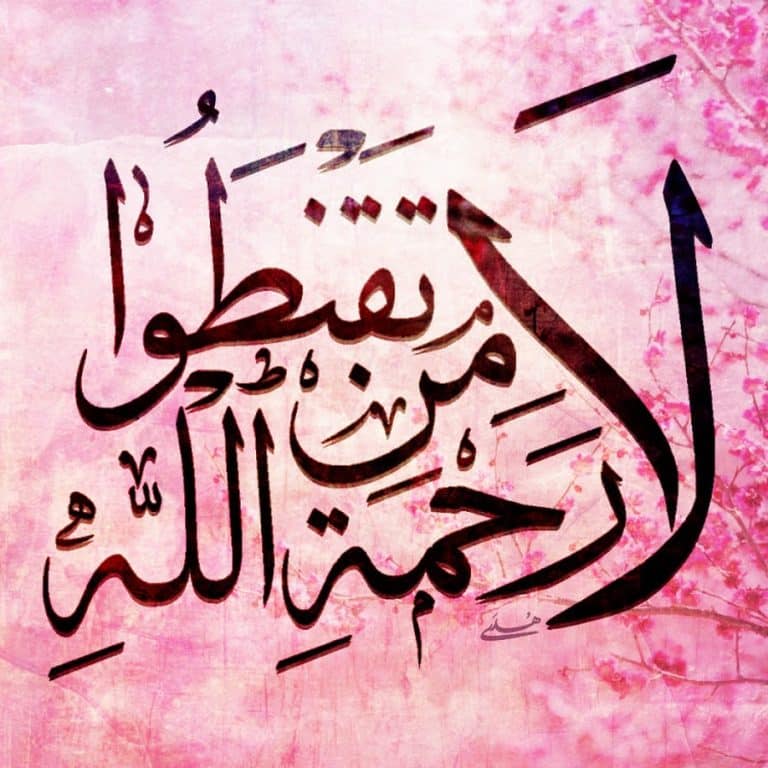 لَا تَقْنَطُوا
مِن رَّحْمَةِ اللَّهِ
هُدَى